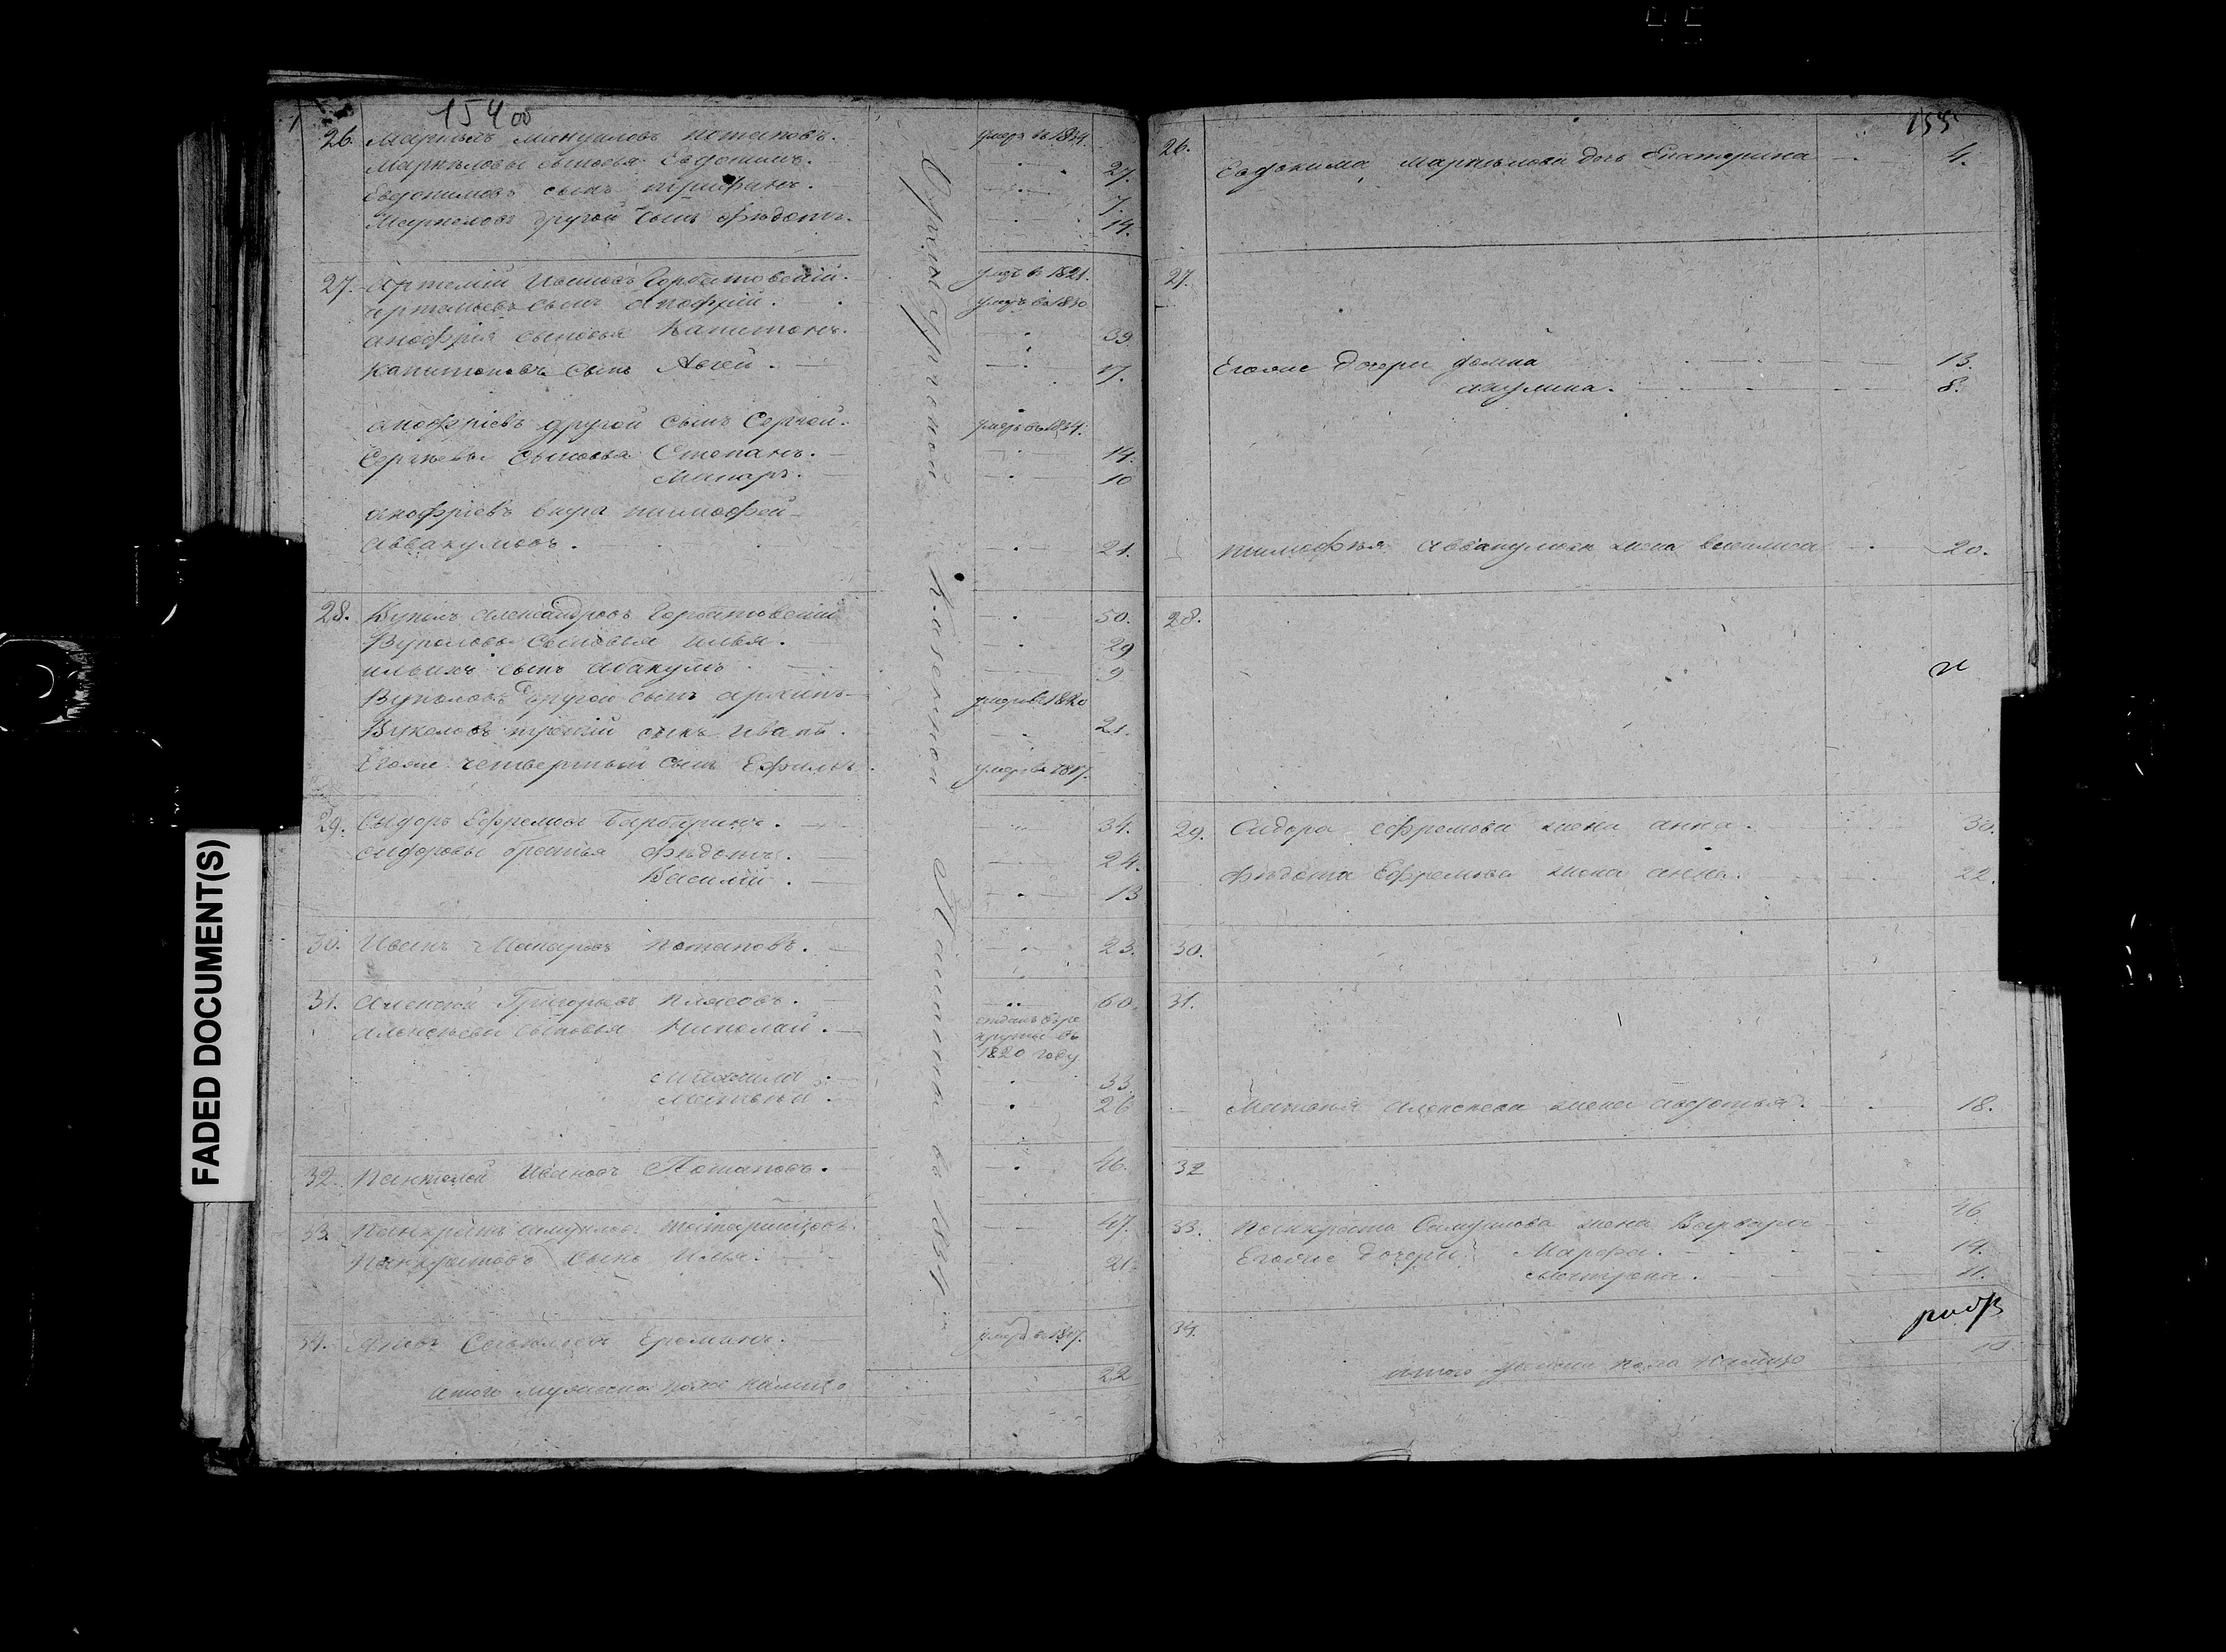 154 об
26. Маркелъ Мануиловъ Потаповъ. умеръ въ 1834.
Маркеловы сыновья Евдокимъ. 27.
Евдокимовъ сынъ Трифанъ. 7.
Маркеловъ другой сынъ Федотъ. 14.
27. Артемий Ивановъ Горбатовский. умеръ в 1821.
Артемьевъ сынъ Анофрий. умеръ в 1830
Анофрия сыновья Капитонъ. 39
Капитоновъ сынъ Авсей. 17.
Анофриевъ другой сынъ Сергей. умеръ въ 1834.
Сергеевы сыновья Степанъ. 14.
Макаръ. 10
Анофриевъ внука Тимофей
Аввакумовъ. 21.
28. Вукилъ Александровъ Горбатовский 50.
Вуколовы сыновья Илья. 29
Ильинъ сынъ Абакумъ 9
Вуколовъ другой сынъ Архипъ умеръ в 1820
Вуколовъ третий сынъ Иванъ. 21.
Егоже четвертый сынъ Ефимъ умеръ в 1817.
29. Сидоръ Ефремовъ 34.
Сидоровы братья Федотъ. 24.
Василий. 13
30. Иванъ Макаровъ Потаповъ. 23.
31. Алексей Григорьевъ Плясовъ. 60.
Алексеевы сыновья Николай. отданъ въ ре
круты въ
1820 году
Михаила. 33
Матвей. 26
32. Пантелей Ивановъ Потаповъ. 46.
33. Панкратъ Самуиловъ 47.
Панкратовъ сынъ Илья. 21.
34. Яковъ Савельевъ Ереминъ. умеръ в 1817.
итого мужеска пола налицо 22
1834
155
26. Евдокима Маркелова дочь Екатерина 4.
27.
Егоже дочери Домна 13.
Акулина. 8.
Тимофея Аввакумова жена Василиса 20.
28.
29. Сидора Ефремова жена Анна. 30.
Федота Ефремова жена Анна. 22.
30.
31.
Матвея Алексеева жена Авдотья. 18.
32
33. Панкрата Самуилова жена Варвара 46
Егоже дочери Марфа. 14.
Матрона. 11.
34.
итого женска пола налицо 10
FADED DOCUMENT(S)